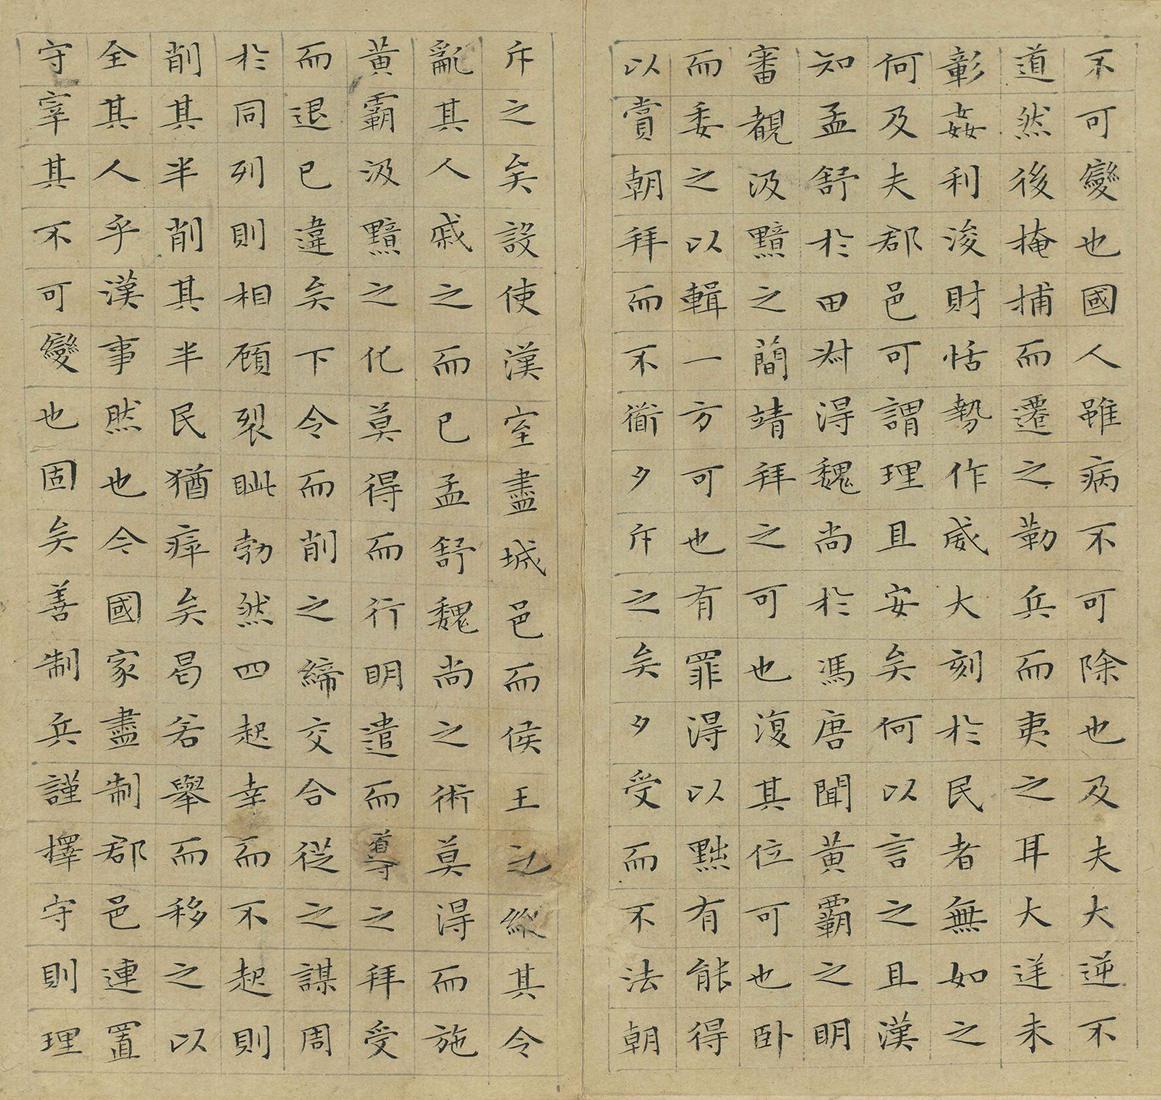 不可變也國人雖病不可除也及夫大逆不
道然後掩捕而遷之勒兵而夷之耳大逆未
彰姦利浚財恬勢作威大刻於民者無如之
何及夫郡邑可謂理且安矣何以言之且漢
知孟舒於田叔得魏尚於馮唐聞黃霸之眀
審覩汲黯之簡靖拜之可也復其位可也卧
而委之以輯一方可也有罪得以黜有能得
以賞朝拜而不衜夕斥之矣夕受而不法朝
斥之矣設使漢室盡城邑而侯王之縱其令
亂其人戚之而已孟舒魏尚之術莫得而施
黃霸汲黯之化莫得而行眀遣而導之拜受
而退已違矣下令而削之締交合從之謀周
於同列則相顧裂眦勃然四起幸而不起則
削其半削其半民猶瘁矣曷若舉而移之以
全其人乎漢事然也今國家盡制郡邑連置
守宰其不可變也固矣善制兵謹擇守則理